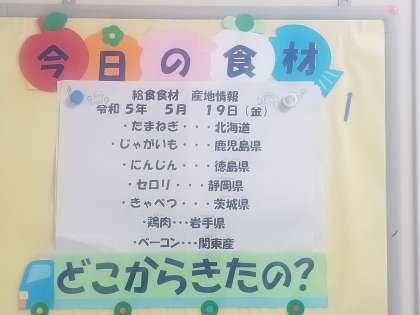 今日の食材
給食食材　産地情報
令和 5年　5月　19日（金）
・たまねぎ・・・北海道
・じゃがいも・・・鹿児島県
・にんじん・・・徳島県
・セロリ・・・静岡県
・きゃべつ・・・茨城県
・鶏肉・・・岩手県
・ベーコン・・・関東産
どこからきたの？